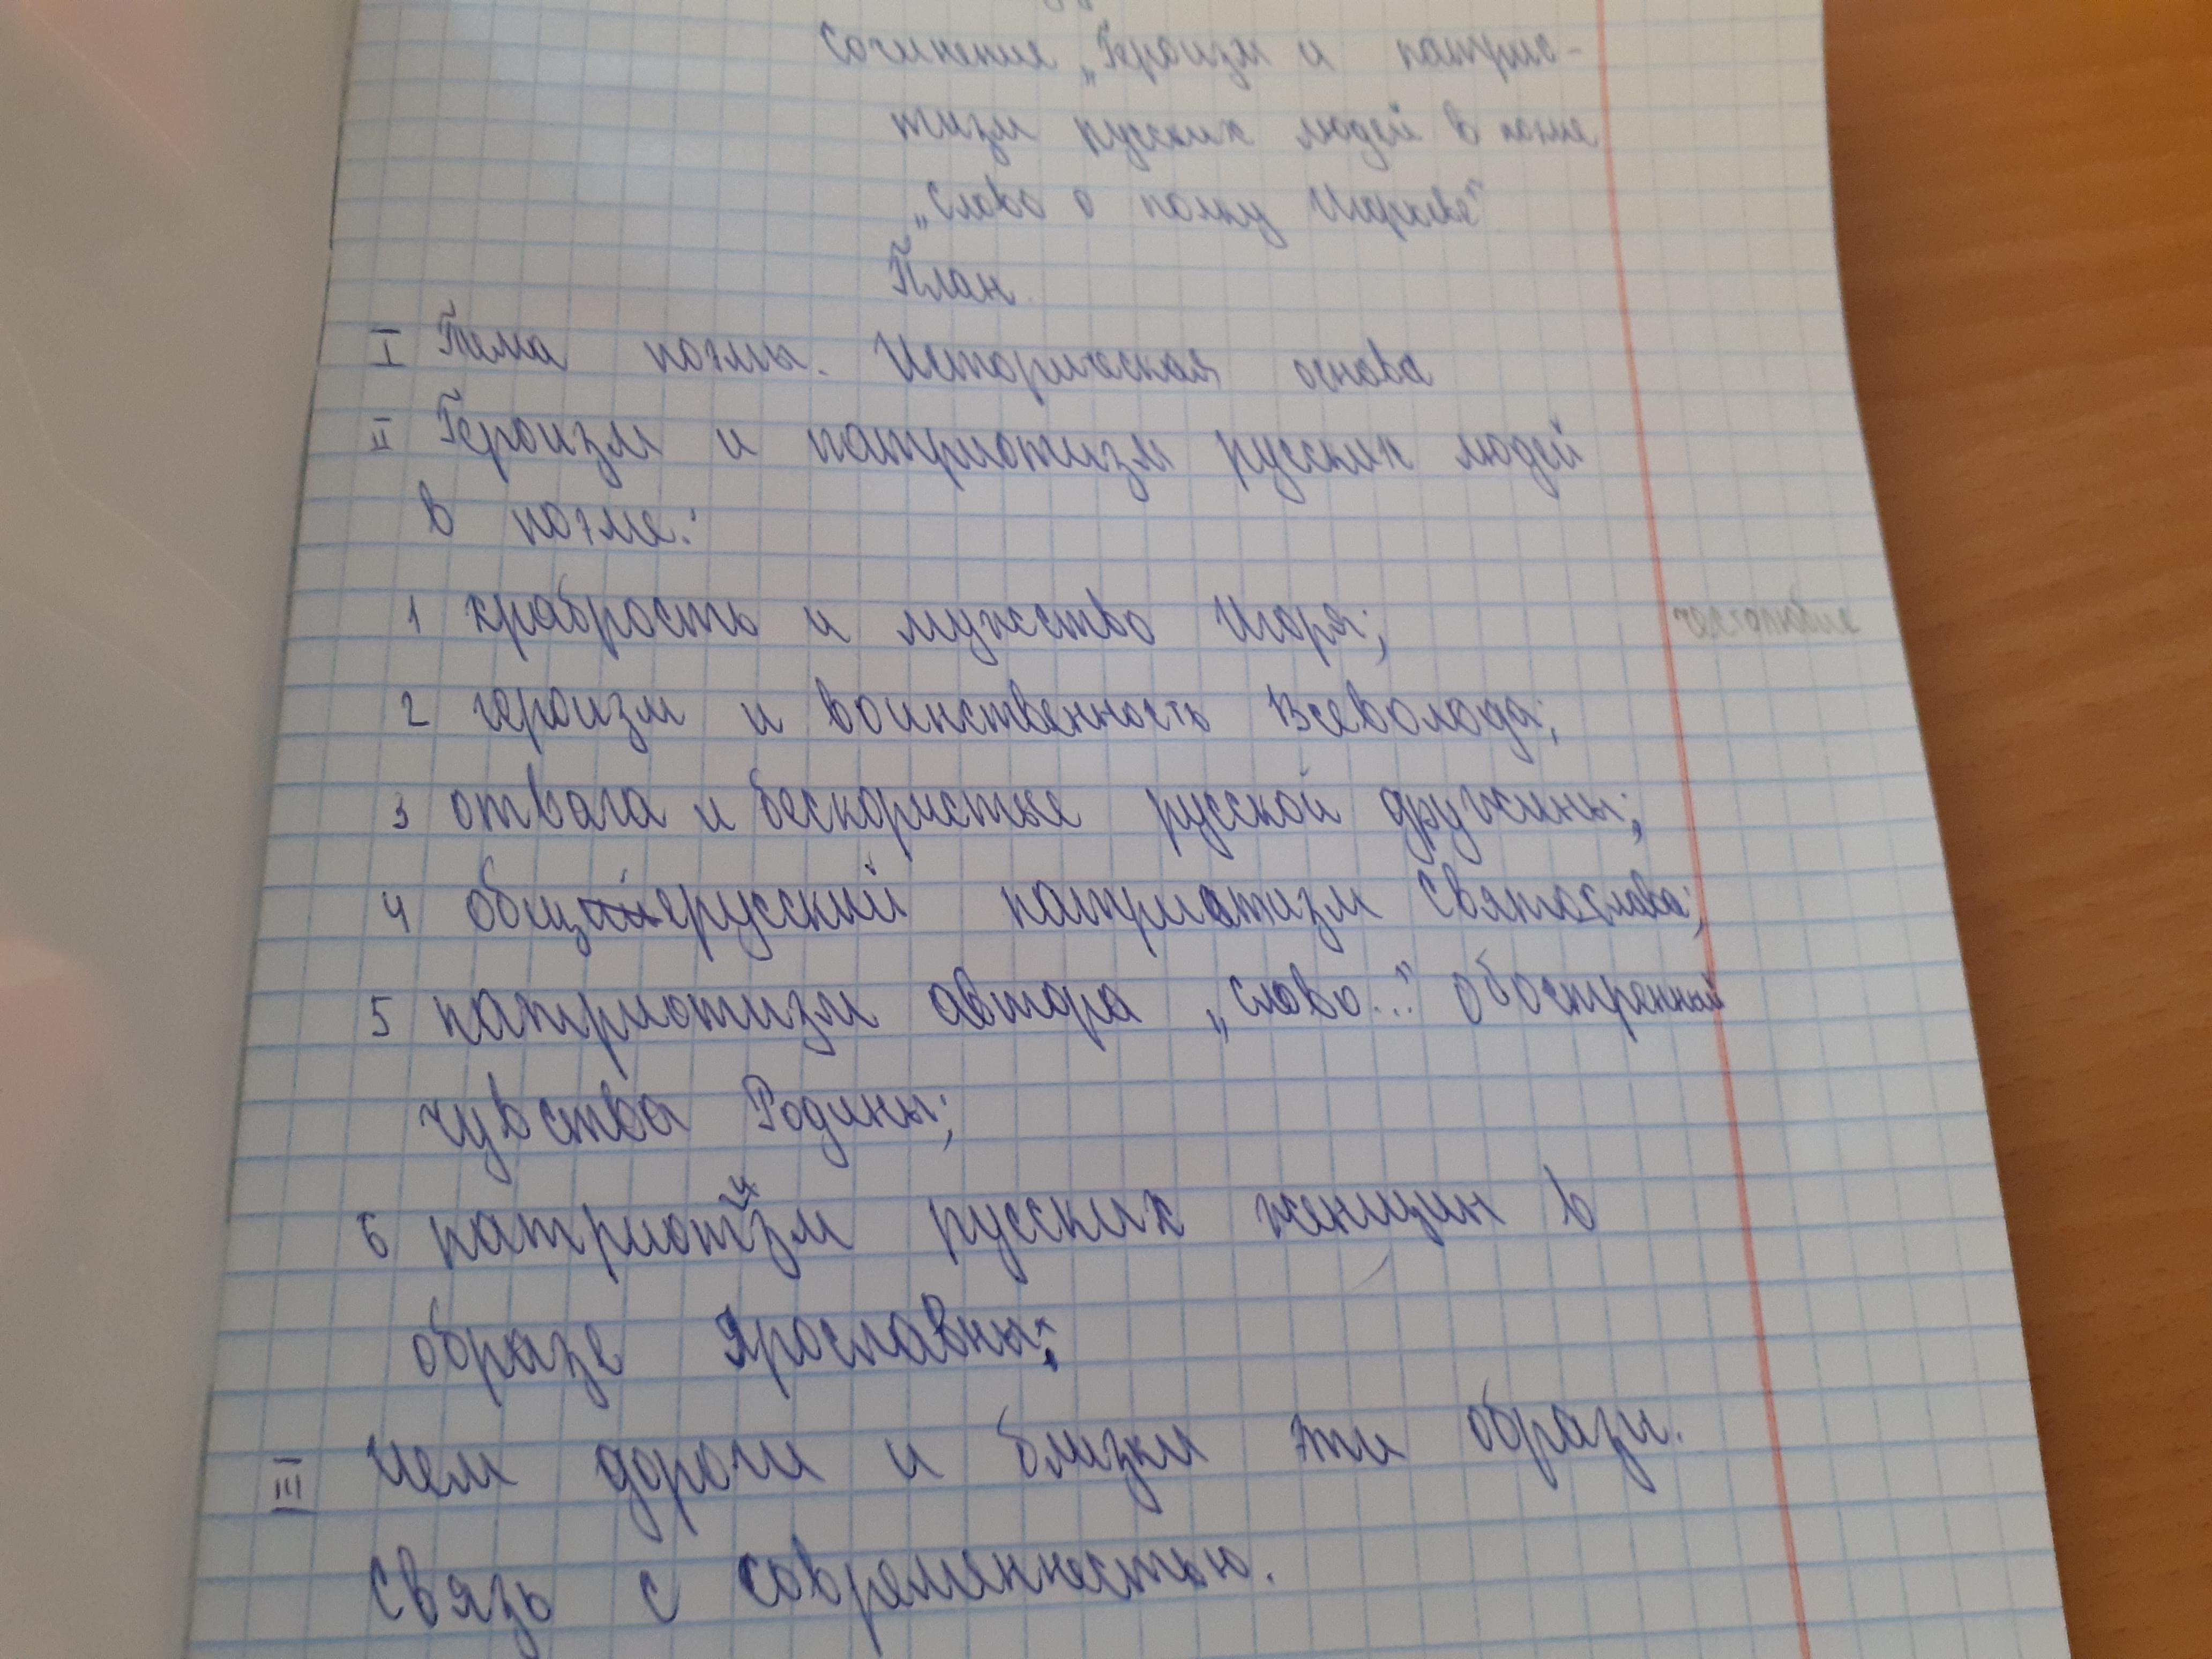 Сочинение „Героизм и патрио-
тизм русских людей в поэме
„Слово о полку Игореве"
План
I Тема поэмы. Историческая основа
II Героизм и патриотизм русских людей
в поэме:
1 храбрость и мужество Игоря;
честолюбие
2 героизм и воинственность Всеволода;
3 отвага и бескорыстие русской дружины;
4 общерусский патриотизм Святослава;
5 патриотизм автора „Слово..." обостренный
чувства Родины;
6 патриотизм русских женщин в
образе Ярославны;
III Чем дороги и близки эти образы.
Связь с современностью.